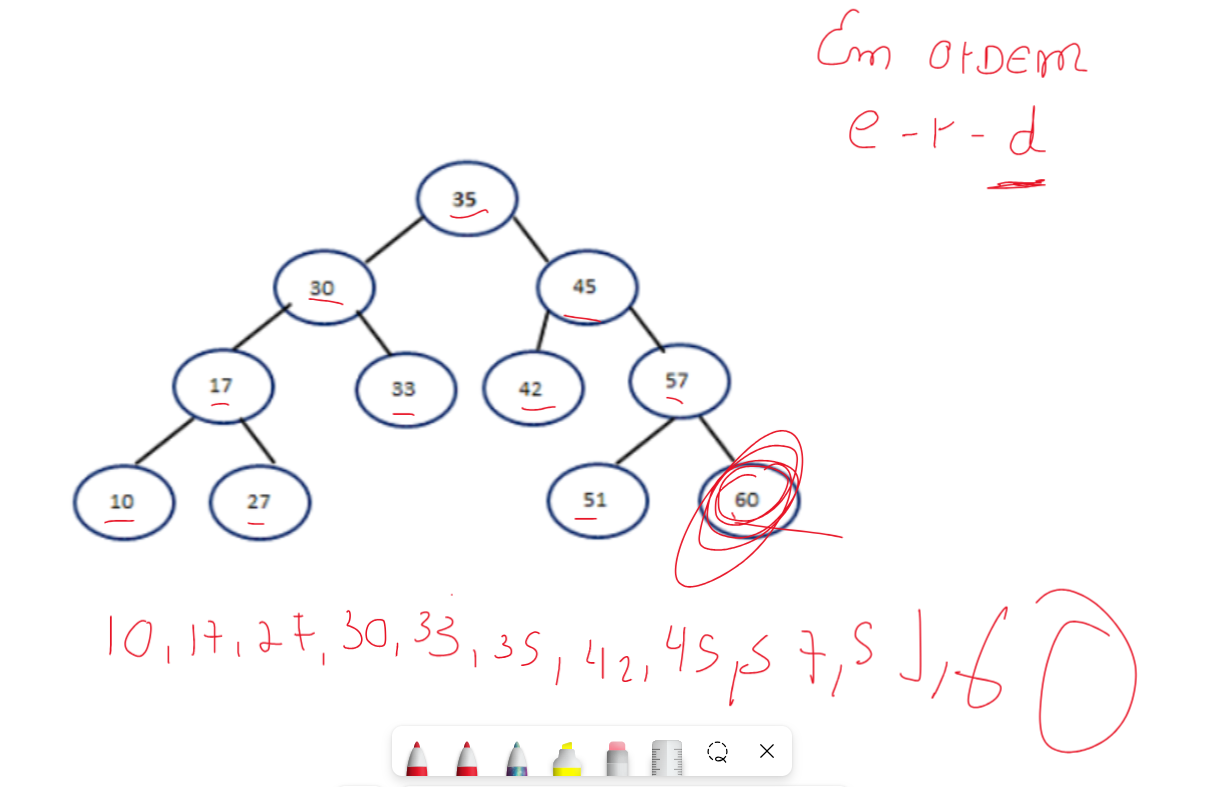 Em ordem
e-r-d
35
30 45
17 33 42 57
10 27 51 60
10, 17, 27, 30, 33, 35, 42, 45, 57, 51, 60